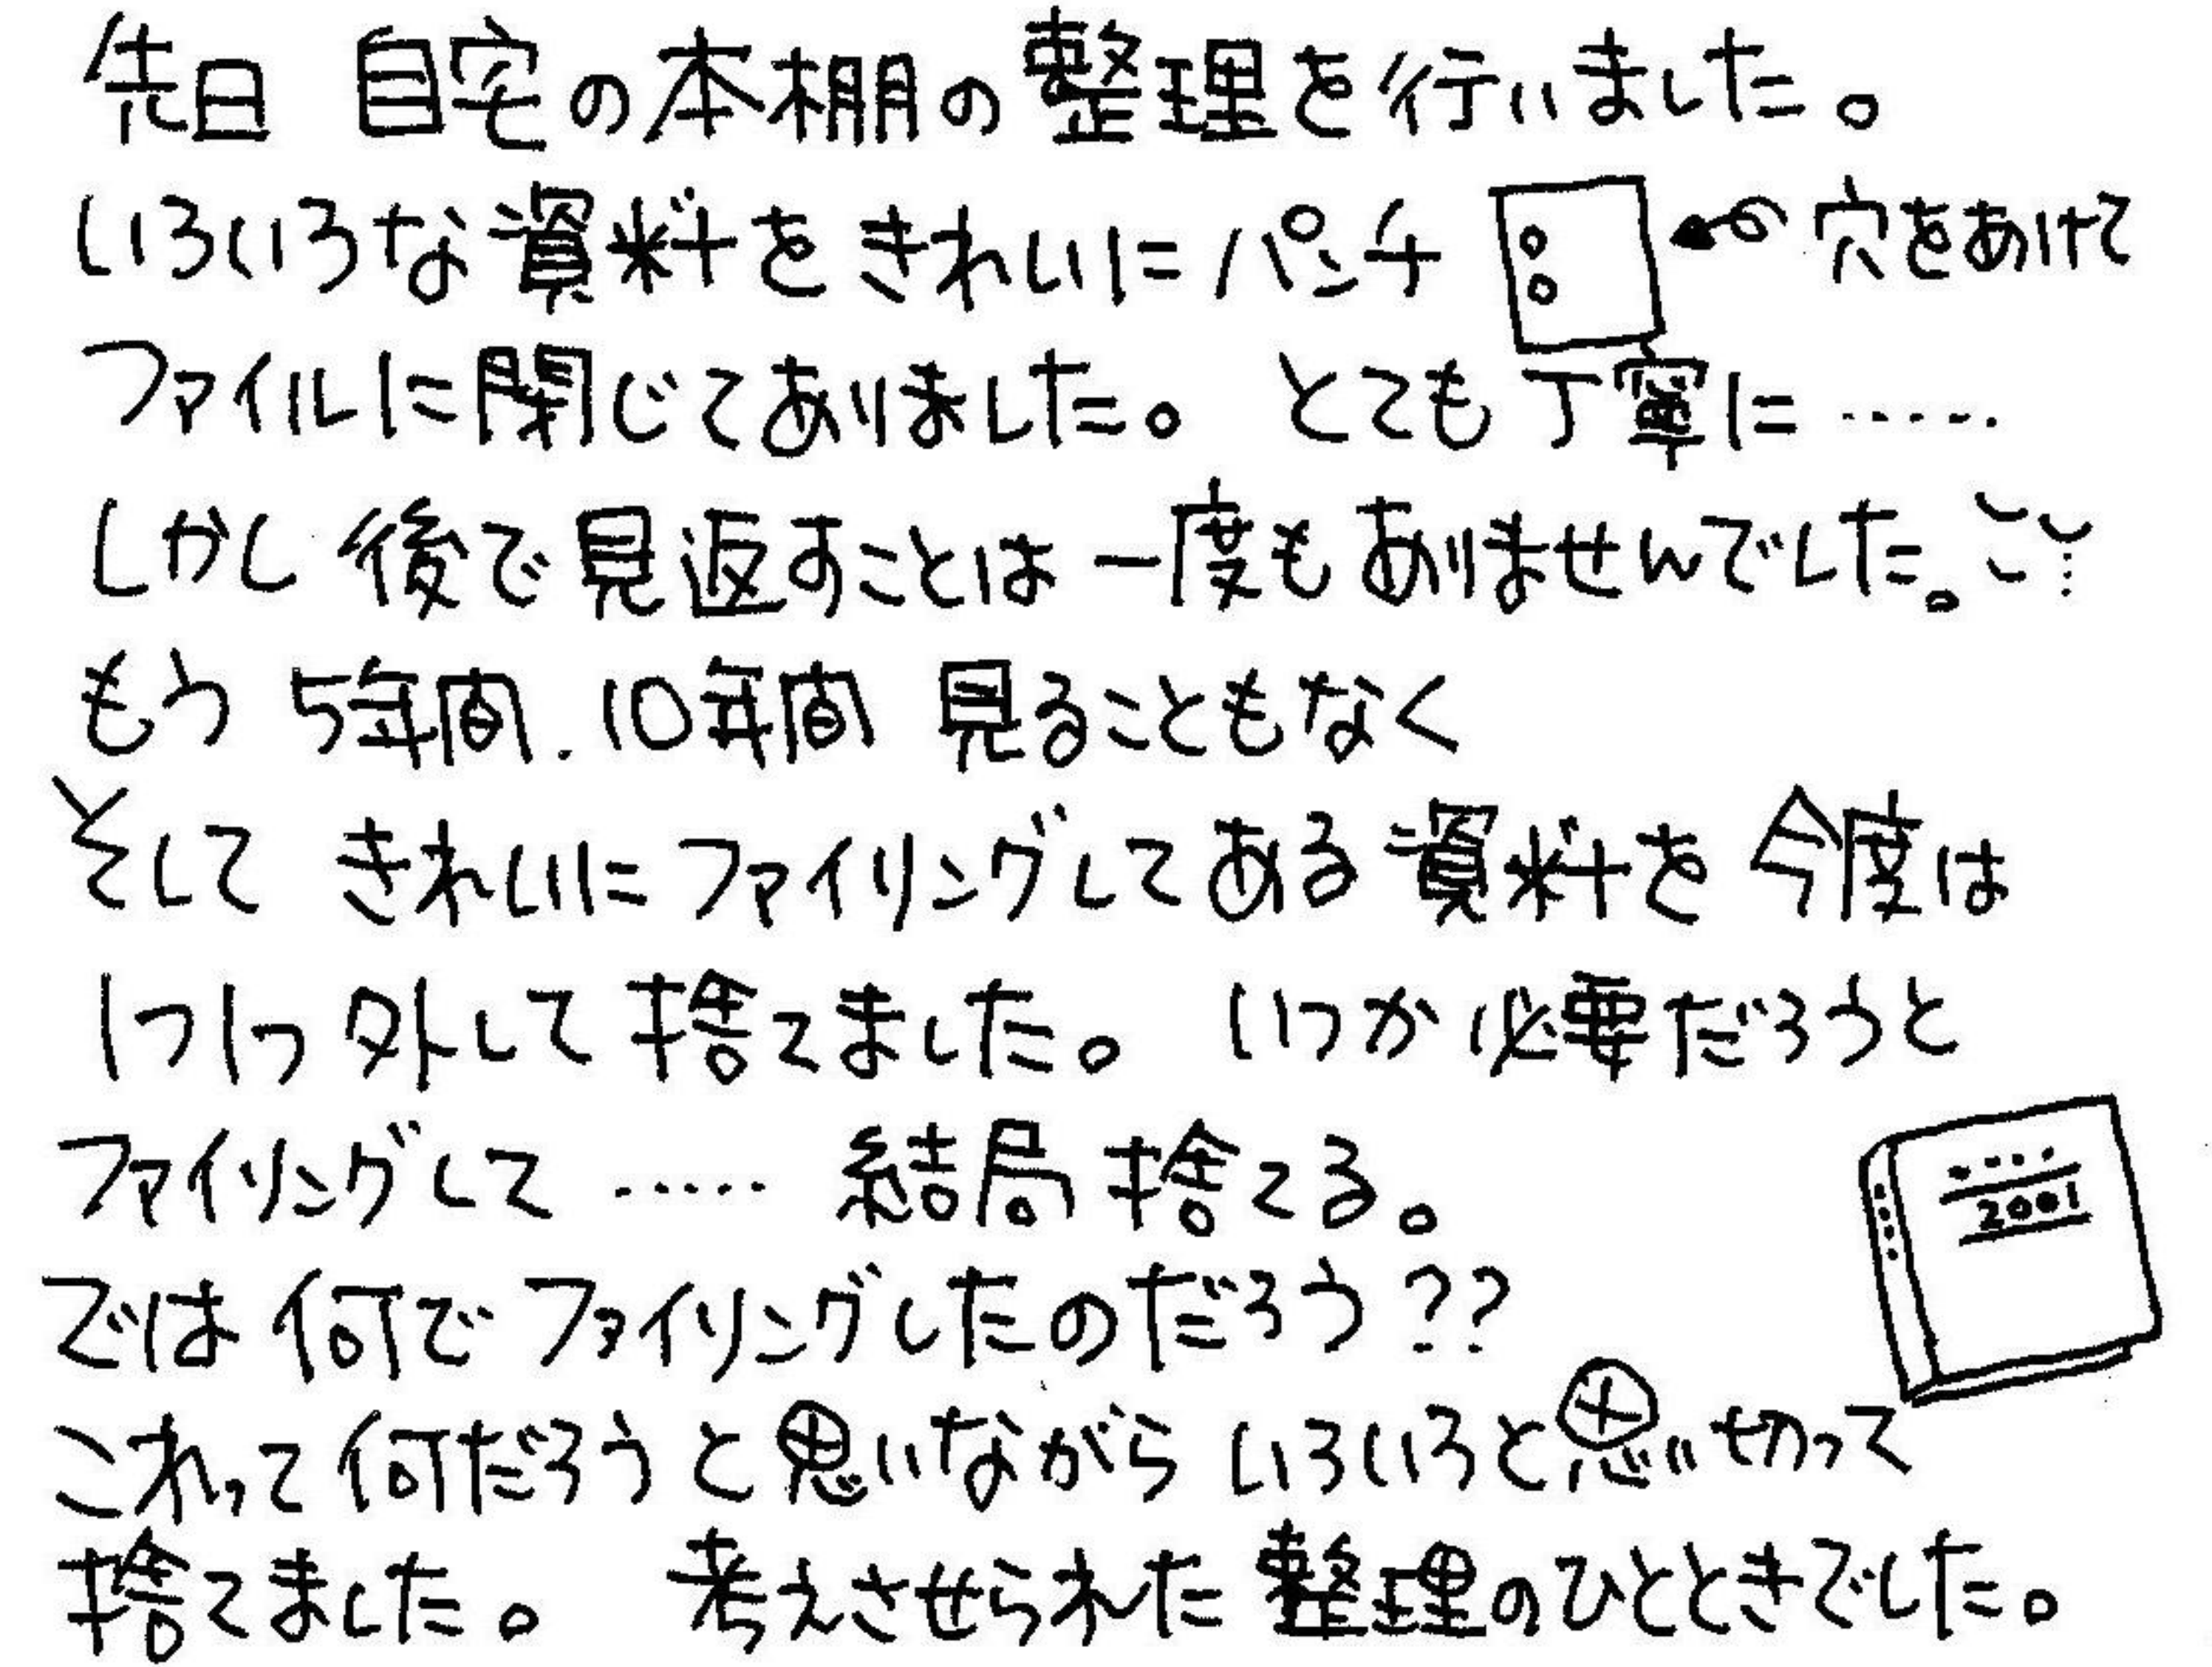 先日 自宅の本棚の整理を行いました。
いろいろな資料をきれいにパンチ 穴をあけて
ファイルに閉じてありました。 とても丁寧に‥‥‥
しかし後で見返すことは一度もありませんでした。
もう 5年間.10年間 見ることもなく
そして きれいにファイリングしてある資料を今度は
1つ1つ外して捨てました。 いつか必要だろうと
ファイリングして ‥‥‥ 結局捨てる。
2001
では何でファイリングしたのだろう??
これって何だろうと思いながら いろいろと思い切って
捨てました。 考えさせられた整理のひとときでした。